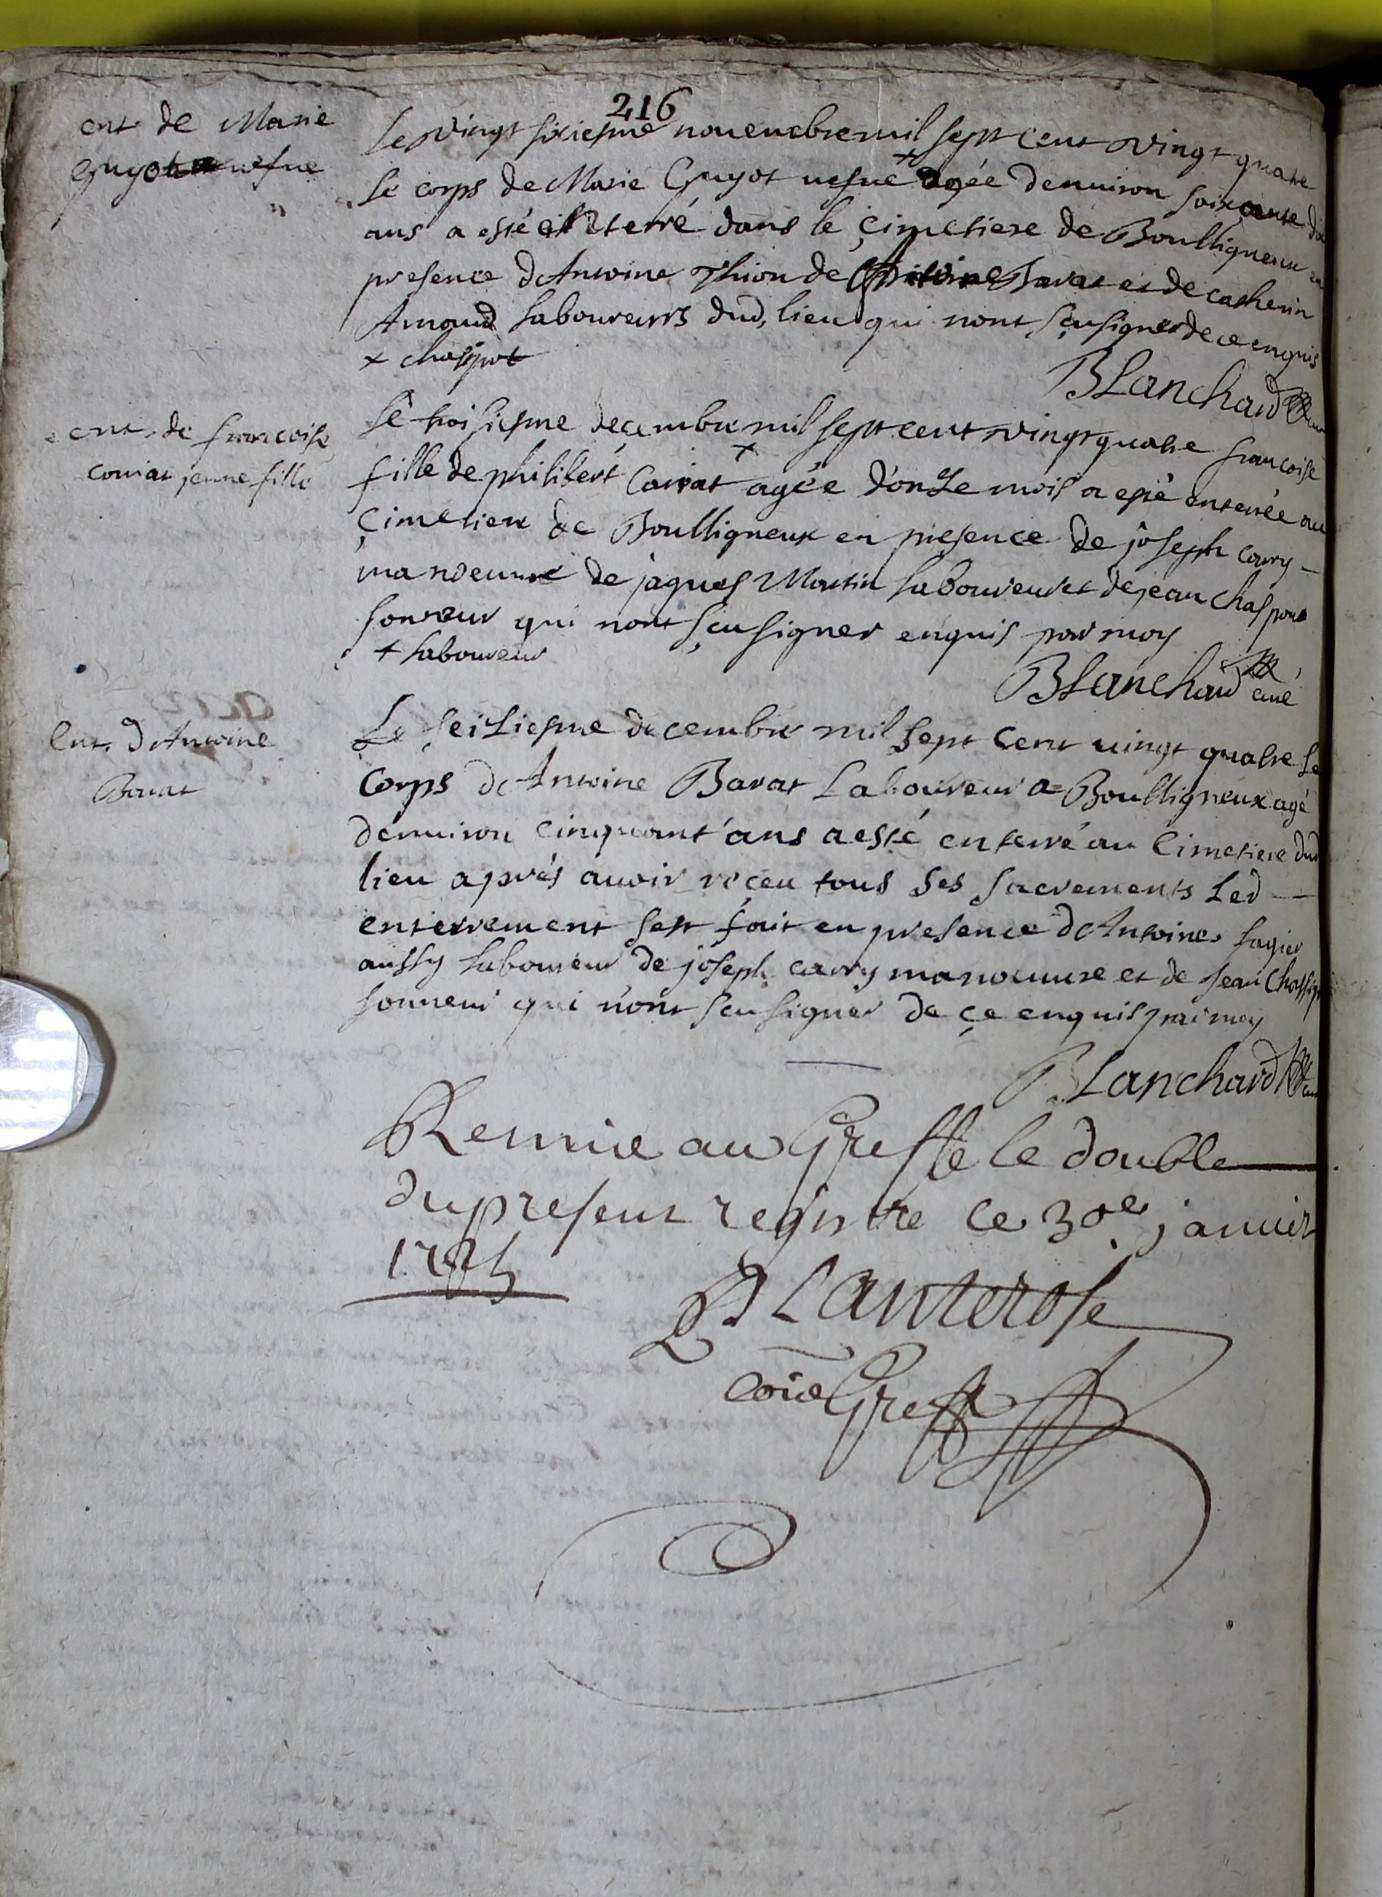 216
ent. de Marie
Guyot vefue
Le vingt sixiesme nouembre mil sept cent vingt quatre
Le corps de Marie Guyot vefue + agée denuiron soixante dix
ans a esté enterré dans le çimetiere de Boulligneux en
presence d'Antoine Thion de Barat et de catherin
Arnaud Laboureurs dud, lieu qui nont sçu signer de ce enquis
+ chaspot
Blanchard
ent. de francoise
coivat jeune fille
Le troisiesme decembre mil sept cent vingt quatre francoise
fille de philibert Coivat + agée d'onze mois a esté enterrée au
Çimetiere de Boulligneux en presence de joseph carry
manoeuure de jaques Martin Laboureur et de jean Chaspot
sonneur qui nont sçu signer enquis par moy
+ Laboureur
Blanchard curé
Ent. d'Antoine
Barat
Le seiziesme decembre mil sept cent vingt quatre le
corps d'Antoine Barat Laboureur a Boulligneux agé
denuiron cinquant'ans a esté enterré au Cimetiere dud
lieu aprés auoir reçeu tous ses sacrements Led
enterrement s'est fait en presence d'Antoine Lagier
aussy Laboureur de joseph carry manouure et de Jean Chaspot
sonneur qui n'ont sçu signer de çe enquis par moy
Blanchard
Remie au Greffe le double
du present registre ce 30e janvier
1725
Lanterose
Coie Greff